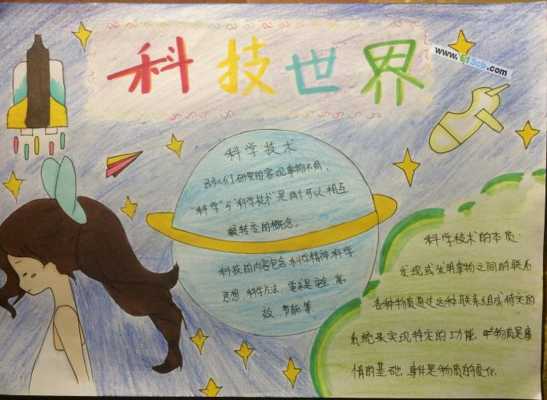 科技世界
科学技术
到人们研究的客观事物不同，
"科学"与"科学技术"是两个可以相互
转变的概念。
科技的内容包含 科学精神 科学
思想 科学方法
效、节能等
科学技术的本质：
发现或发明事物之间的联系
各种物质通过这种联系组成特定的
系统来实现特定的功能
的基础 事件是物质的变化